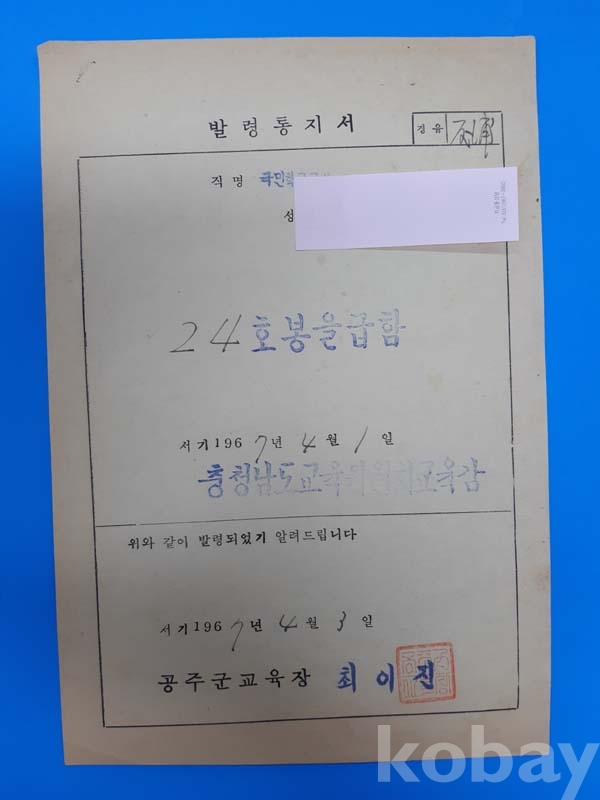 발령통지서
경유
직명 국민학교
성
24호봉을급함
서기1967년 4월 1일
충청남도교육위원회교육감
위와 같이 발령되었기 알려드립니다
서기1967년 4월 3일
공주군교육장 최이진
kobay